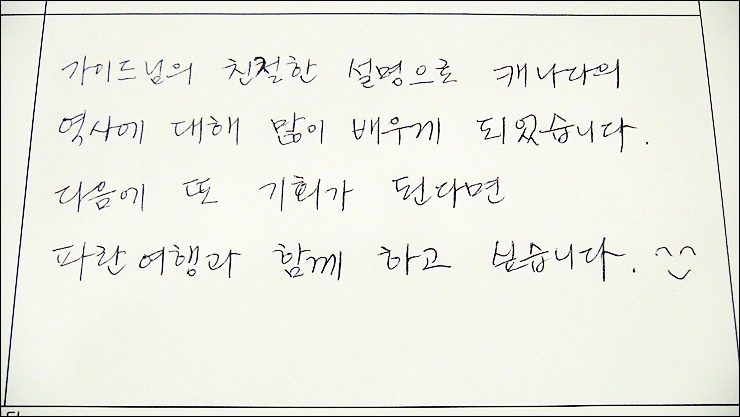 가이드님의 친절한 설명으로 캐나다의
역사에 대해 많이 배우게 되었습니다.
다음에 또 기회가 된다면
파란여행과 함께 하고 싶습니다. ^^